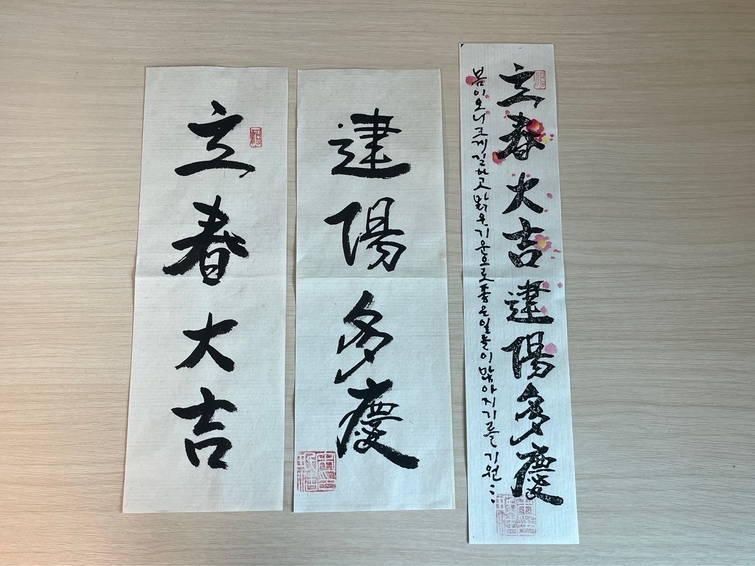 立春大吉
建陽多慶
立春大吉建陽多慶
봄이오니크게길하고맑은기운으로좋은일들이많아지기를기원…